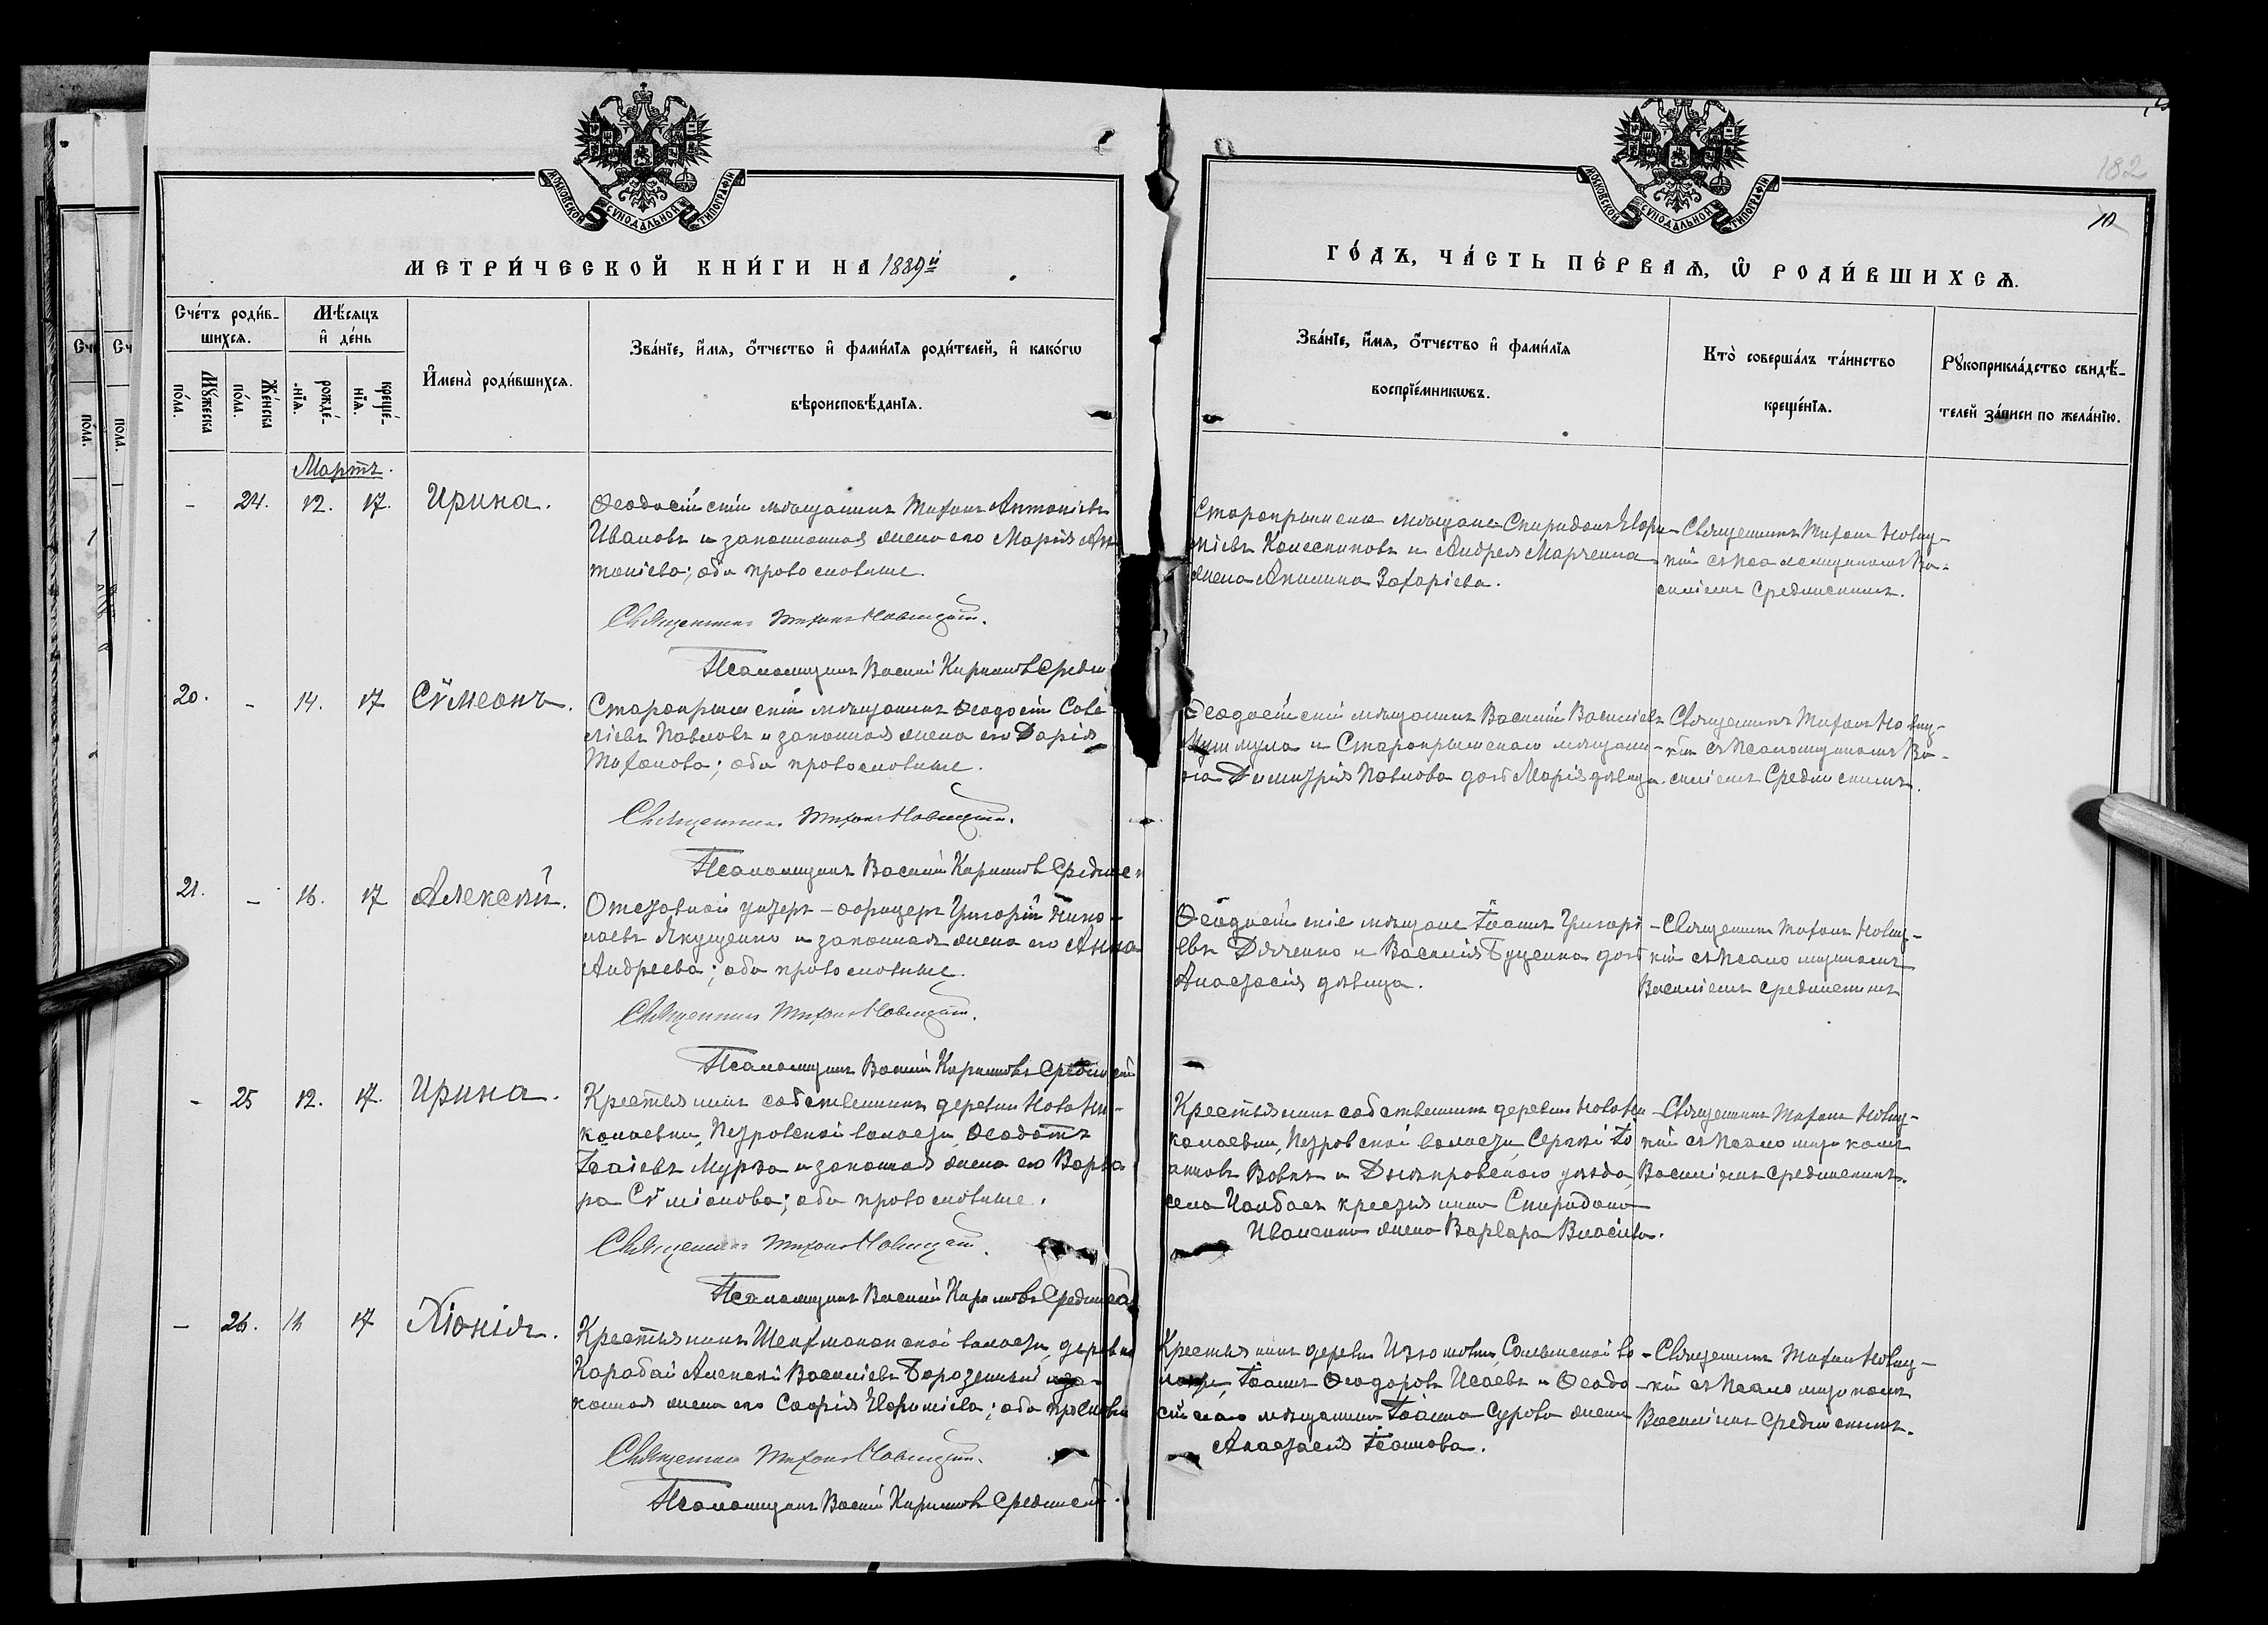 МОСКОВСКОЙ СѴНОДАЛЬНОЙ ТИПОГРАФІИ
МЕТРИ́ЧЕСКОЙ КНИ́ГИ НА 1889й
Сче́тъ роди́в-
шихсѧ.
Мѣ́сѧцъ
и҆ де́нь
Мꙋ́жеска
по́ла.
Же́нска
по́ла.
рожде́-
нїѧ.
креще́-
нїѧ.
И҆мена̀ роди́вшихсѧ.
Зва́нїе, и҆́мѧ, ѻ҆́тчество и҆ фами́лїѧ роди́телей, и҆ како́гѡ
вѣроисповѣ́данїѧ.
Мартъ.
- 24. 12. 17. Ирина.
Ѳеодосійскій мѣщанинъ Тихонъ Антоніевъ
Ивановъ и законная жена его Марія Ан
тоніева; оба православные.
Священникъ Тихонъ Новицкій.
Псаломщикъ Василій Кириловъ Средин
20. - 14. 17 Сѵмеонъ.
Старокрымскій мѣщанинъ Ѳеодосій Саве
ліевъ Павловъ и законная жена его Дарія
Тихонова; оба православные.
Священникъ Тихонъ Новицкій.
Псаломщикъ Василій Кириловъ Средине
21. - 16. 17 Алексѣй.
Отставной унтеръ-офицеръ Григорій Нико-
лаевъ Якущенко и законная жена его Анна
Андреева; оба православные.
Священникъ Тихонъ Новицкій.
Псаломщикъ Василій Кириловъ Средин скій
- 25 12. 17. Ирина.
Крестьянинъ собственникъ деревни Ново Ни-
колаевки, Петровской волости, Ѳеодотъ
Исаіевъ Мурза и законная жена его Варва
ра Сѵміонова; оба православные.
Священникъ Тихонъ Новицкій.
Псаломщикъ Василій Кириловъ Срединска
- 26. 17 Хіонія.
Крестьянинъ волости, деревни
Карабай Алексѣй Василіевъ и за-
конная жена его Софія Евфиміева; оба правосла
Священникъ Тихонъ Новицкій.
Псаломщикъ Василій Кириловъ Срединскій.
МОСКОВСКОЙ СѴНОДАЛЬНОЙ ТИПОГРАФІИ
182
10
ГО́ДЪ, ЧА́СТЬ ПЕ́РВАѦ, Ѡ҆ РОДИ́ВШИХСѦ.
Зва́нїе, и҆́мѧ, ѻ҆́тчество и҆ фами́лїѧ
воспрїе́мникѡвъ.
Кто̀ соверша́лъ та́инство
креще́нїѧ.
Рꙋкоприкла́дство свидѣ́-
телей за́писи по жела́нїю.
Старокрымскіе мѣщане Спиридонъ Евфи-
міевъ Колесниковъ и Андрея Марченка
жена Акилина Захаріева.
Священникъ Тихонъ Новиц-
кій съ псаломщикомъ Ва-
силіемъ Срединскимъ.
Ѳеодосійскій мѣщанинъ Василій Василіевъ
и Старокрымскаго мѣщани-
на Димитрія Павлова дочь Марія дѣвица.
Священникъ Тихонъ Новиц-
кій съ псаломщикомъ Ва-
силіемъ Срединскимъ.
Ѳеодосійскіе мѣщане Іоаннъ Григорі-
евъ Дяченко и Василія Буценка дочь
Анастасія дѣвица.
Священникъ Тихонъ Новиц-
кій съ псаломщикомъ
Василіемъ Срединскимъ
Крестьянинъ собственникъ деревни Ново Ни-
колаевки, Петровской волости, Сергій Іо
анновъ Вовкъ и Днѣпровскаго уѣзда,
села Чолбасъ крестьянина Спиридона
Иваненка жена Варвара Власіева.
Священникъ Тихонъ Новиц-
кій съ псаломщикомъ
Василіемъ Срединскимъ.
Крестьянинъ деревни Изюмовки, Салынской во-
лости, Іоаннъ Ѳеодоровъ Исаевъ и Ѳеодо-
сійскаго мѣщанина Іоанна Сурова жена
Анастасія Іоаннова.
Священникъ Тихонъ Новиц-
кій съ псаломщикомъ
Василіемъ Срединскимъ.